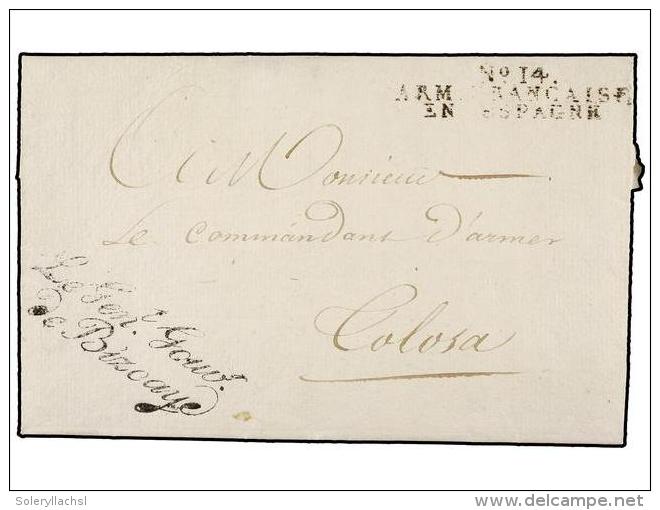 No 14.
ARM FRANÇAISE
EN ESPAGNE
A Monsieur
Le commandant d'armes
Tolosa
Le Gen.l Gouv.r
de Bizcaye
Soleryllachsl
delcampe.net